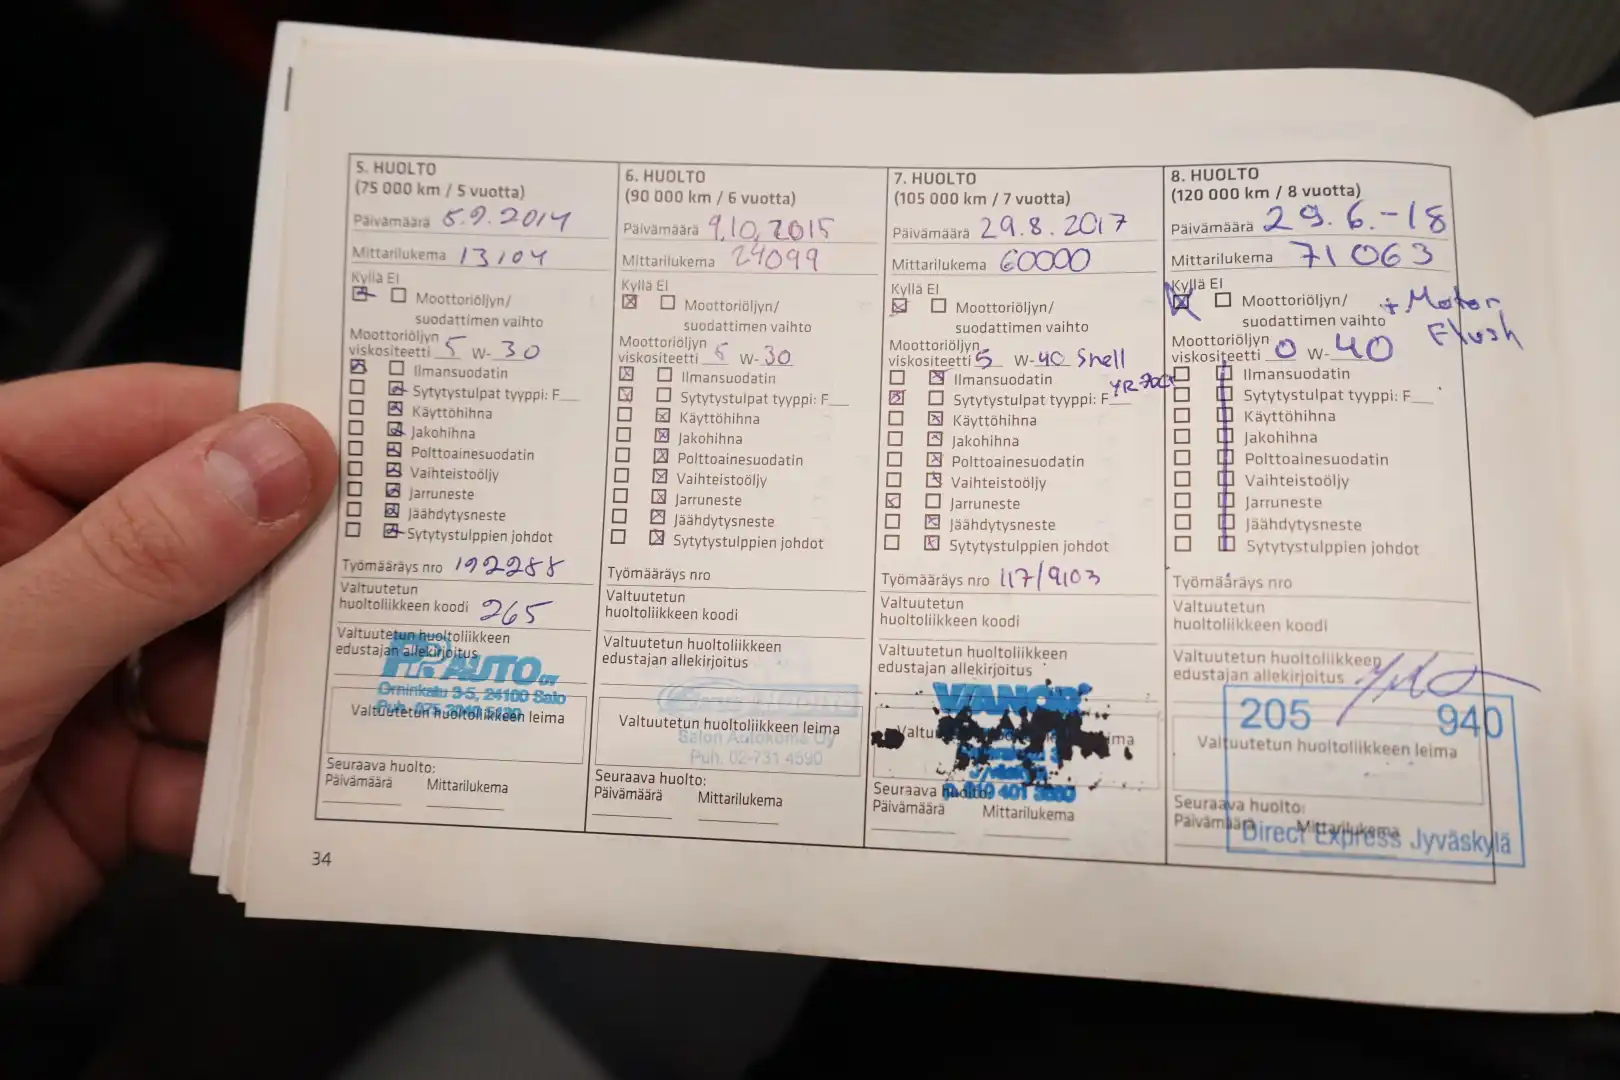 5. HUOLTO
(75 000 km / 5 vuotta)
Päivämäärä 5.9.2014
Mittarilukema 13104
Kyllä Ei
Moottoriöljyn/
suodattimen vaihto
Moottoriöljyn
viskositeetti 5 W- 30
Ilmansuodatin
Sytytystulpat tyyppi: F__
Käyttöhihna
Jakohihna
Polttoainesuodatin
Vaihteistoöljy
Jarruneste
Jäähdytysneste
Sytytystulppien johdot
Työmääräys nro 192288
Valtuutetun
huoltoliikkeen koodi 265
Valtuutetun huoltoliikkeen
edustajan allekirjoitus
PP. AUTO OY
Örninkatu 3-5, 24100 Salo
Valtuutetun huoltoliikkeen leima
Seuraava huolto:
Päivämäärä Mittarilukema
6. HUOLTO
(90 000 km / 6 vuotta)
Päivämäärä 9.10.2015
Mittarilukema 24099
Kyllä Ei
Moottoriöljyn/
suodattimen vaihto
Moottoriöljyn
viskositeetti 5 W- 30
Ilmansuodatin
Sytytystulpat tyyppi: F__
Käyttöhihna
Jakohihna
Polttoainesuodatin
Vaihteistoöljy
Jarruneste
Jäähdytysneste
Sytytystulppien johdot
Työmääräys nro
Valtuutetun
huoltoliikkeen koodi
Valtuutetun huoltoliikkeen
edustajan allekirjoitus
Valtuutetun huoltoliikkeen leima
Salon Autokoma Oy
Puh. 02-731 4590
Seuraava huolto:
Päivämäärä Mittarilukema
7. HUOLTO
(105 000 km / 7 vuotta)
Päivämäärä 29.8.2017
Mittarilukema 60000
Kyllä Ei
Moottoriöljyn/
suodattimen vaihto
Moottoriöljyn
viskositeetti 5 W- 40 Shell
Ilmansuodatin
Sytytystulpat tyyppi: F__
Käyttöhihna
Jakohihna
Polttoainesuodatin
Vaihteistoöljy
Jarruneste
Jäähdytysneste
Sytytystulppien johdot
Työmääräys nro 117/9103
Valtuutetun
huoltoliikkeen koodi
Valtuutetun huoltoliikkeen
edustajan allekirjoitus
Seuraava huolto:
Päivämäärä Mittarilukema
8. HUOLTO
(120 000 km / 8 vuotta)
Päivämäärä 29.6.-18
Mittarilukema 71063
Kyllä Ei
Moottoriöljyn/
suodattimen vaihto + Motor
Flush
Moottoriöljyn
viskositeetti 0 W- 40
Ilmansuodatin
Sytytystulpat tyyppi: F__
Käyttöhihna
Jakohihna
Polttoainesuodatin
Vaihteistoöljy
Jarruneste
Jäähdytysneste
Sytytystulppien johdot
Työmääräys nro
Valtuutetun
huoltoliikkeen koodi
Valtuutetun huoltoliikkeen
edustajan allekirjoitus
205 940
Valtuutetun huoltoliikkeen leima
Seuraava huolto:
Päivämäärä Mittarilukema
Direct Express Jyväskylä
34